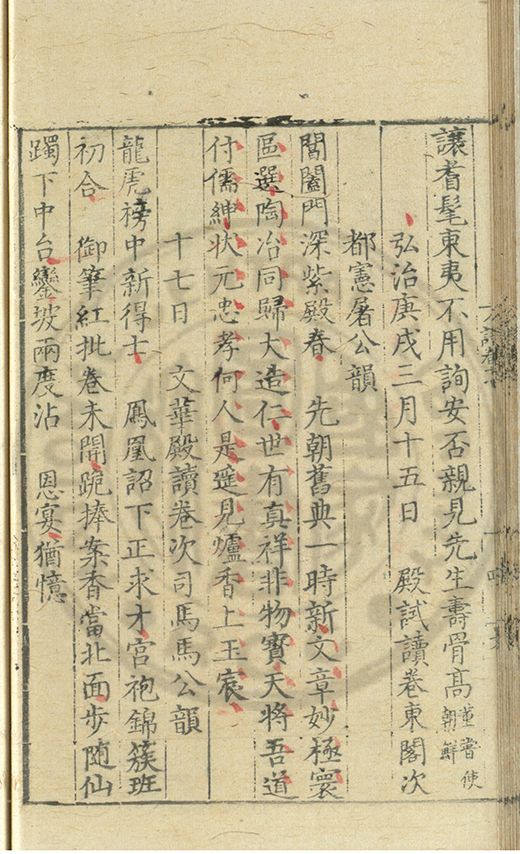 讓耆髦東夷不用詢安否親見先生壽骨髙董嘗使朝鮮
弘治庚戌三月十五日 殿試讀卷東閣次
都憲屠公韻
閶闔門深紫殿春 先朝舊典一時新文章妙極寰
區選陶冶同歸大造仁世有真祥非物寶天將吾道
付儒紳狀元忠孝何人是遥見爐香上玉宸
十七日 文華殿讀卷次司馬馬公韻
龍虎榜中新得士 鳳凰詔下正求才宫袍錦簇班
初合 御筆紅批卷未開跪捧案香當北面步随仙
躅下中台鑾坡兩度沾 恩宴猶憶